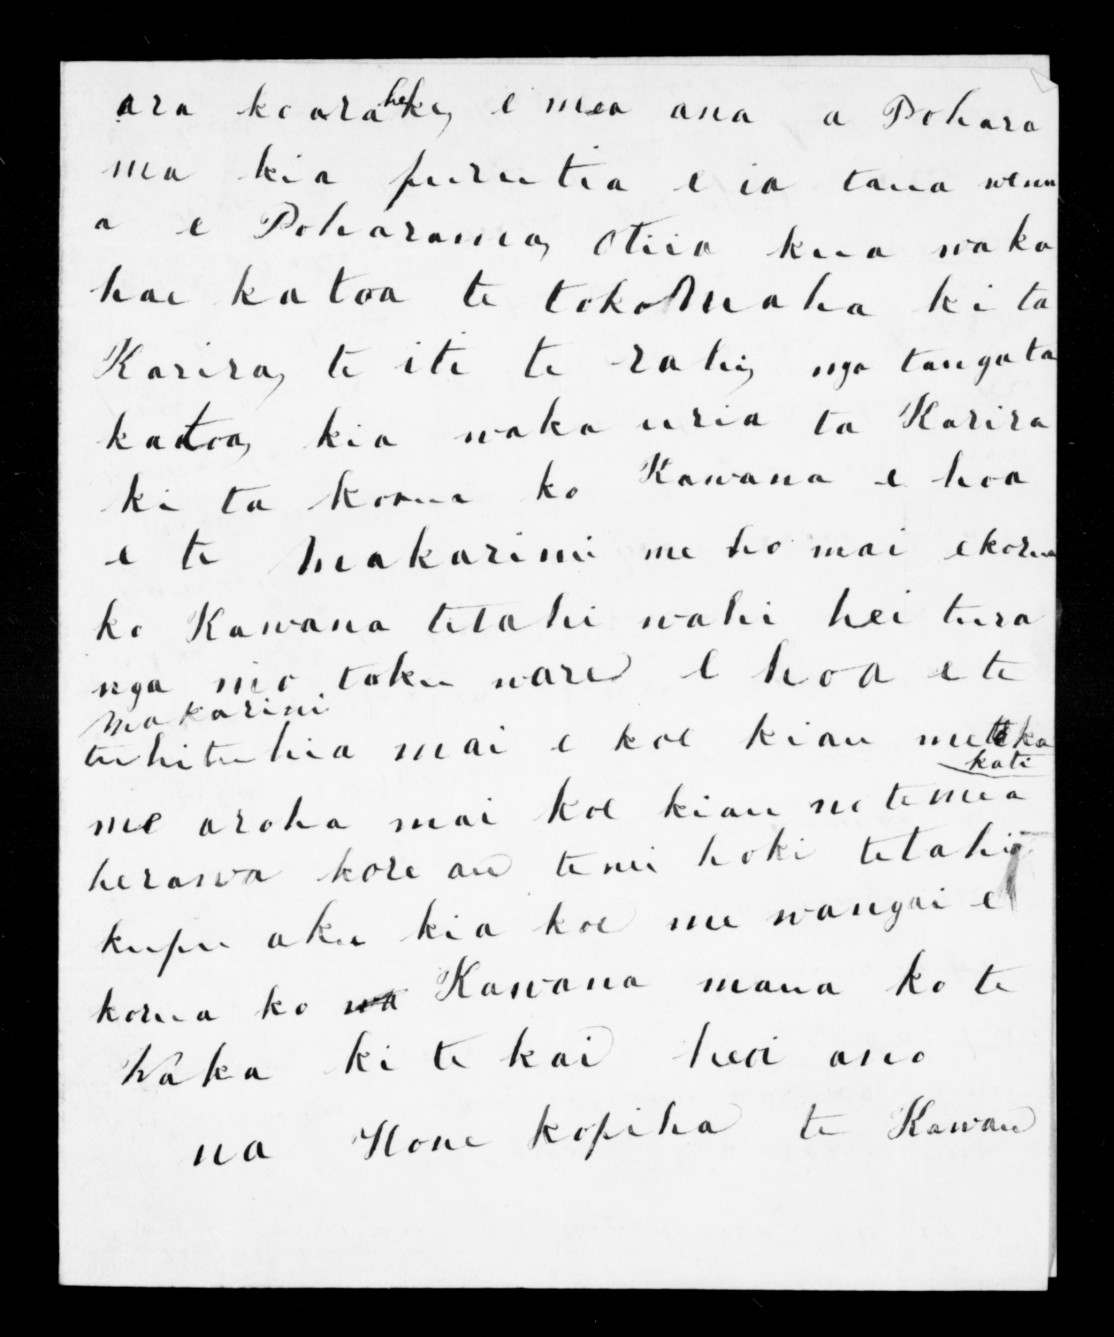 ara ko araheke, e mea ana a Pohara
ma kia purutia e ia taua wenu
a e Poharama, Otiia kua waka
hae katoa te tokoMaha ki ta
Karira, te iti te rahi, nga tangata
katoa, kia waka uria ta Karira
ki ta korua ko Kawana e hoa
e te Makarini me ho mai ekorua
ko Kawana tetahi wahi hei tura
nga mo toku ware E hoa e te
Makarini
tuhituhia mai e koe kiau me
kati
me aroha mai koe kiau notemea
herawa kore au tenei hoki tetahi
kupu aku kia koe me wangai e
korua ko Kawana mana ko te
Waka ki te kai heoi ano
na Hone kopiha te Kawau